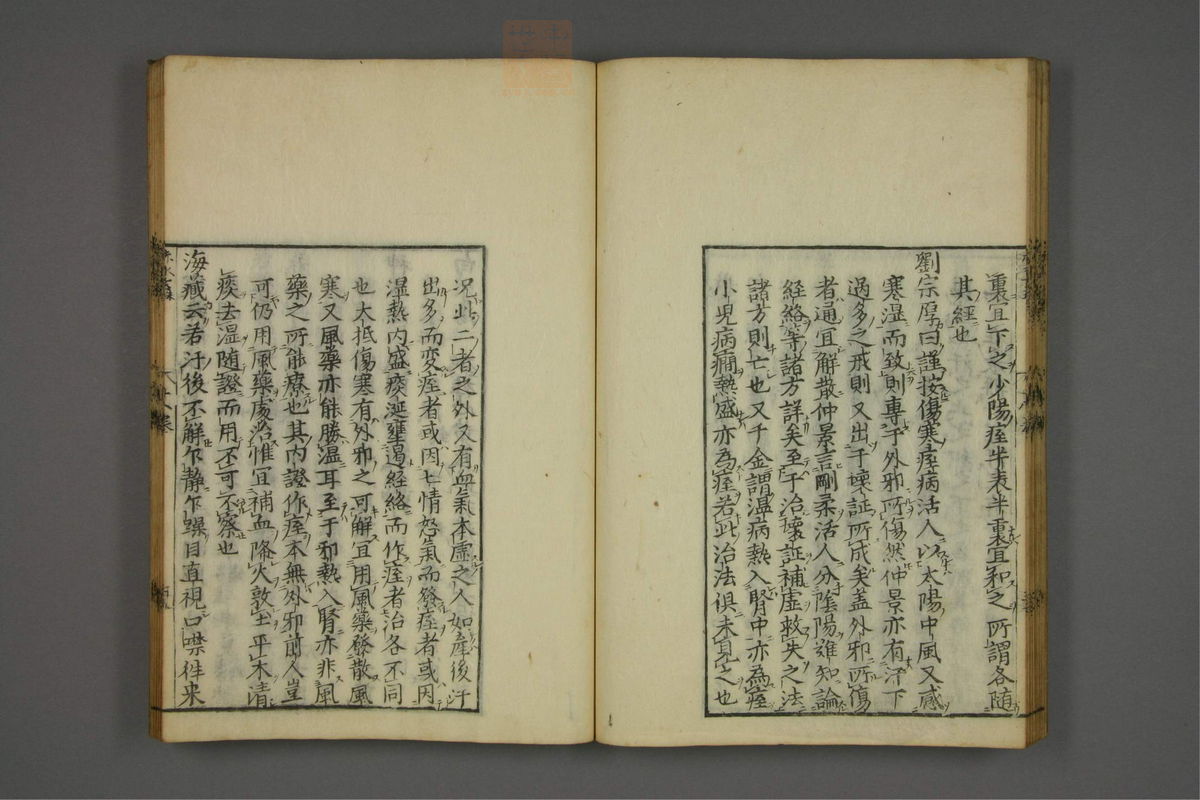 裏宜下之少陽痓半表半裏宜和之所謂各随
其經也
劉宗厚曰謹按傷寒痓病活人以太陽中風又感
寒湿而致則專于外邪所傷然仲景亦有汗下
過多之戒則又出于壞証所成矣盖外邪所傷
者通宜解散仲景言剛柔活人分陰陽雖知論
經絡等諸方詳矣至于治壞証補虚救失之法
諸方則亡也又千金謂温病熱入腎中亦為痓
小児病癇熱盛亦為痓若此治法俱未見之也
况此二者之外又有血氣本虚之人如産後汗
出多而変痓者或因七情怒氣而發痓者或因
湿熱内盛痰涎壅遏經絡而作痓者治各不同
也大抵傷寒有外邪之可解宜用風藥發散風
寒又風藥亦能勝温耳至于邪熱入腎亦非風
藥之所能療也其内證作痓本無外邪前人豈
可仍用風藥處治惟宜補血降火敦土平木清
痰去温随證而用不可不察也
海藏云若汗後不解乍静乍躁目直視口噤往来